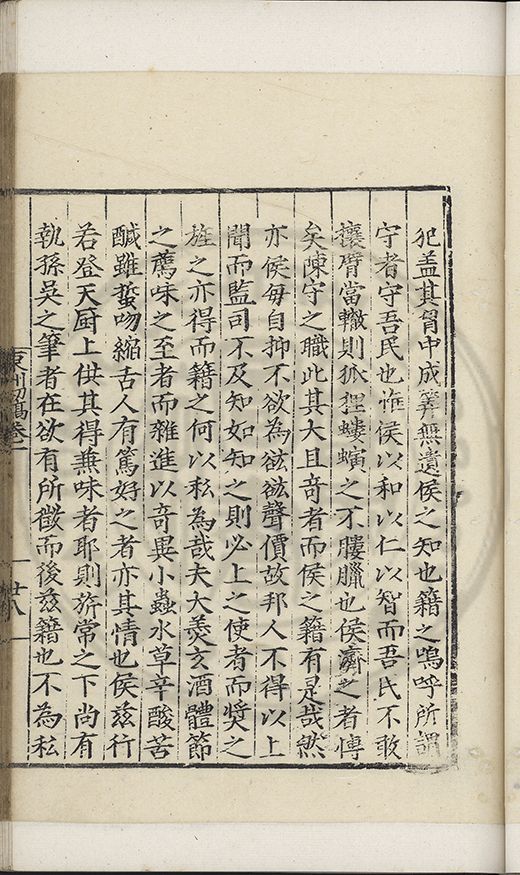 犯盖其胷中成筭無遺侯之知也籍之嗚呼所謂
守者守吾民也惟侯以和以仁以智而吾民不敢
攘臂當轍則狐狸螻螾之不膢臘也侯濟之者慱
矣陳守之職此其大且竒者而侯之籍有是哉然
亦侯每自抑不欲為兹兹聲價故邦人不得以上
聞而監司不及知如知之則必上之使者而奨之
旌之亦得而籍之何以私為哉夫大羹玄酒體節
之薦味之至者而雜進以奇異小蟲水草辛酸苦
醎雖蜇吻縮舌人有篤好之者亦其情也侯兹行
若登天厨上供其得無味者耶則旂常之下尚有
執孫吳之筆者在欲有所徵而後兹籍也不為私
東川初稿卷一
廿八